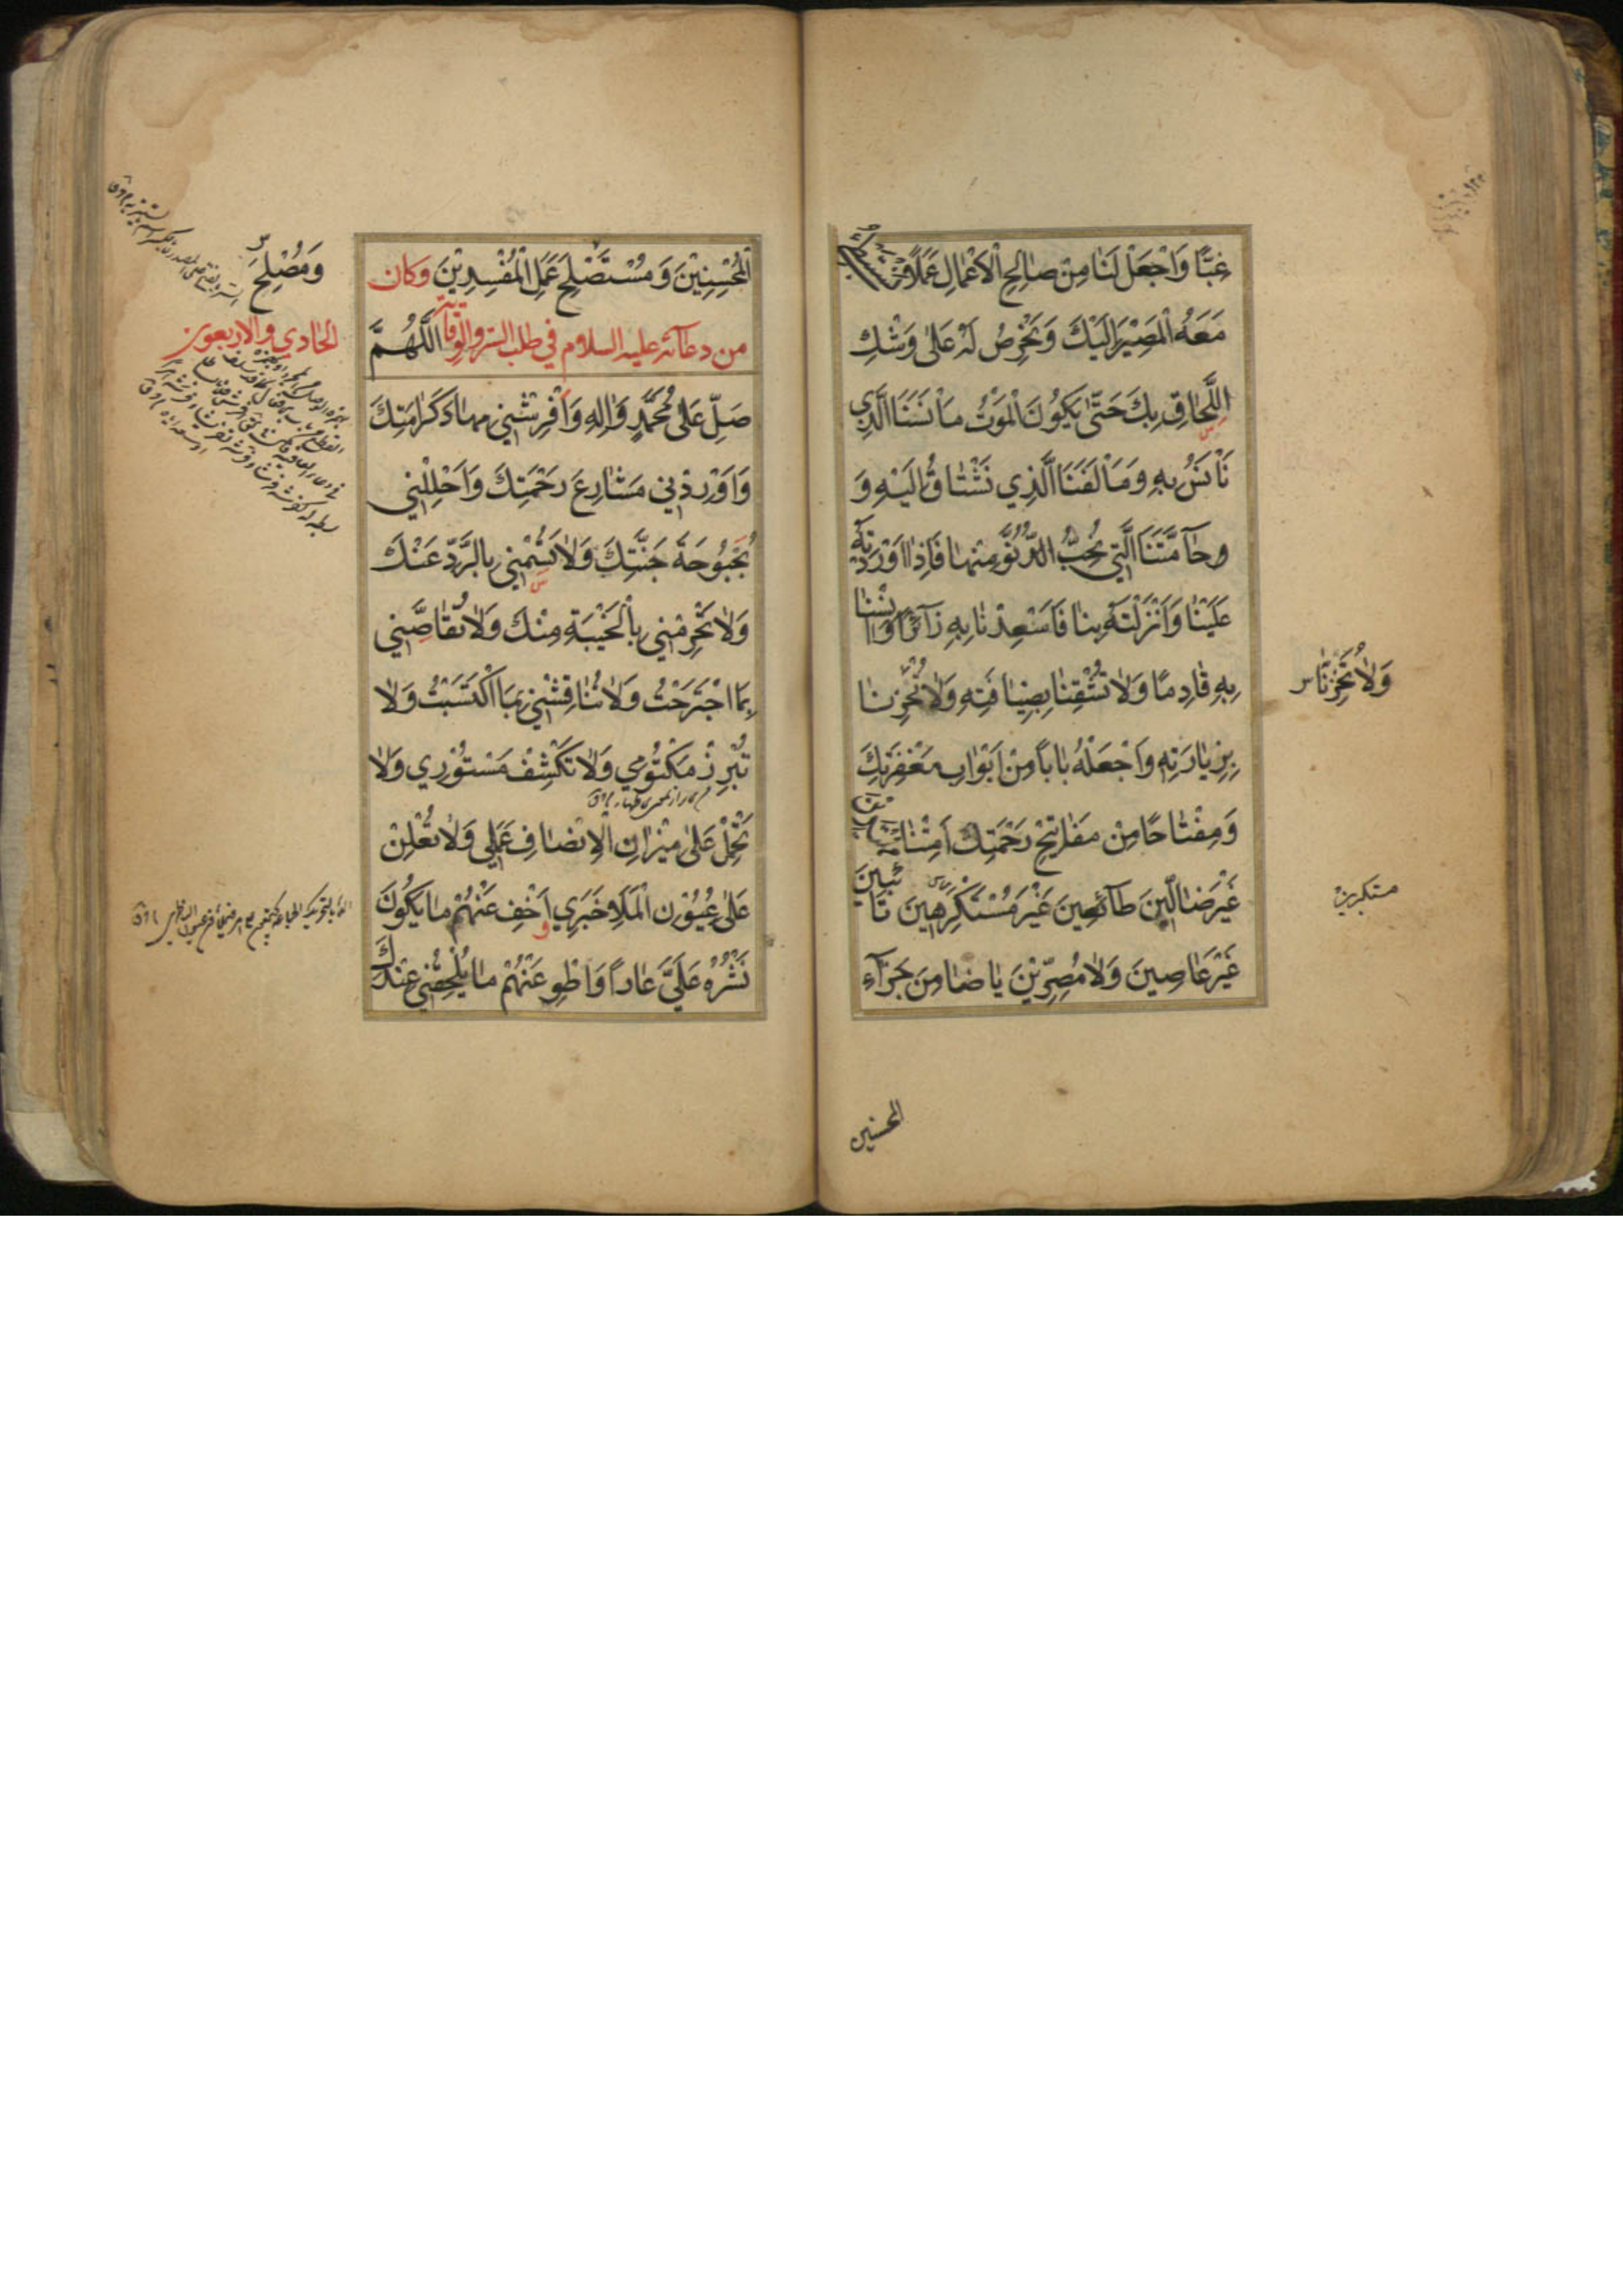 غِبًّا وَاجْعَلْ لَنَا مِنْ صَالِحِ الْأَعْمَالِ عَمَلًا نَسْتَبْطِئُ
مَعَهُ الْمَصِيْرَ اِلَيْكَ وَنَحْرِصُ لَهُ عَلٰى وَشْكِ
اللِّحَاقِ بِكَ حَتّٰى يَكُونَ الْمَوْتُ مَأْنَسَنَا الَّذِي
نَأْنَسُ بِهِ وَمَأْلَفَنَا الَّذِي نَشْتَاقُ اِلَيْهِ وَ
وحَآمَّتَنَا الَّتِي نُحِبُّ الدُّنُوَّ مِنْهَا فَاِذَا اَوْرَدْتَهُ
عَلَيْنَا وَاَنْزَلْتَهُ بِنَا فَاَسْعِدْنَا بِهِ زَآئِرًا وَاٰنِسْنَا
بِهِ قَادِمًا وَلَا تُشْقِنَا بِضِيَافَتِهِ وَلَا تُخْزِنَا
وَلَا تُخْزِنَا س
بِزِيَارَتِهِ وَاجْعَلْهُ بَابًا مِنْ اَبْوَابِ مَغْفِرَتِكَ
وَمِفْتَاحًا مِنْ مَفَاتِيْحِ رَحْمَتِكَ اَمِتْنَا مُهْتَدِينَ
غَيْرَ ضَالِّينَ طَآئِعِينَ غَيْرَ مُسْتَكْرِهِينَ تَائِبِينَ
مستكبرين
غَيْرَ عَاصِينَ وَلَا مُصِرِّيْنَ يَا ضَامِنَ جَزَآءِ
المحسنين
الْمُحْسِنِيْنَ وَمُسْتَصْلِحَ عَمَلِ الْمُفْسِدِيْنَ وَكان
وَمُصْلِحَ
من دعآئه عليه السلام في طلب الستر والوقاية اَللّٰهُمَّ
الحادي والاربعون
صَلِّ عَلٰى مُحَمَّدٍ وَاٰلِهِ وَاَفْرِشْنِي مِهَادَ كَرَامَتِكَ
وَاَوْرِدْنِي مَشَارِعَ رَحْمَتِكَ وَاَحْلِلْنِي
بُحْبُوحَةَ جَنَّتِكَ وَلَا تَسُمْنِي بِالرَّدِّ عَنْكَ
وَلَا تَحْرِمْنِي بِالْخَيْبَةِ مِنْكَ وَلَا تُقَاصَّنِي
بِمَا اجْتَرَحْتُ وَلَا تُنَاقِشْنِي بِمَا اكْتَسَبْتُ وَلَا
تُبْرِزْ مَكْتُومِي وَلَا تَكْشِفْ مَسْتُوْرِي وَلَا
تَحْمِلْ عَلٰى مِيْزَانِ الْاِنْصَافِ عَمَلِي وَلَا تُعْلِنْ
عَلٰى عُيُوْنِ الْمَلَاِ خَبَرِي اَخْفِ عَنْهُمْ مَا يَكُونُ
نَشْرُهُ عَلَيَّ عَارًا وَاطْوِ عَنْهُمْ مَا يُلْحِقُنِي عِنْدَكَ